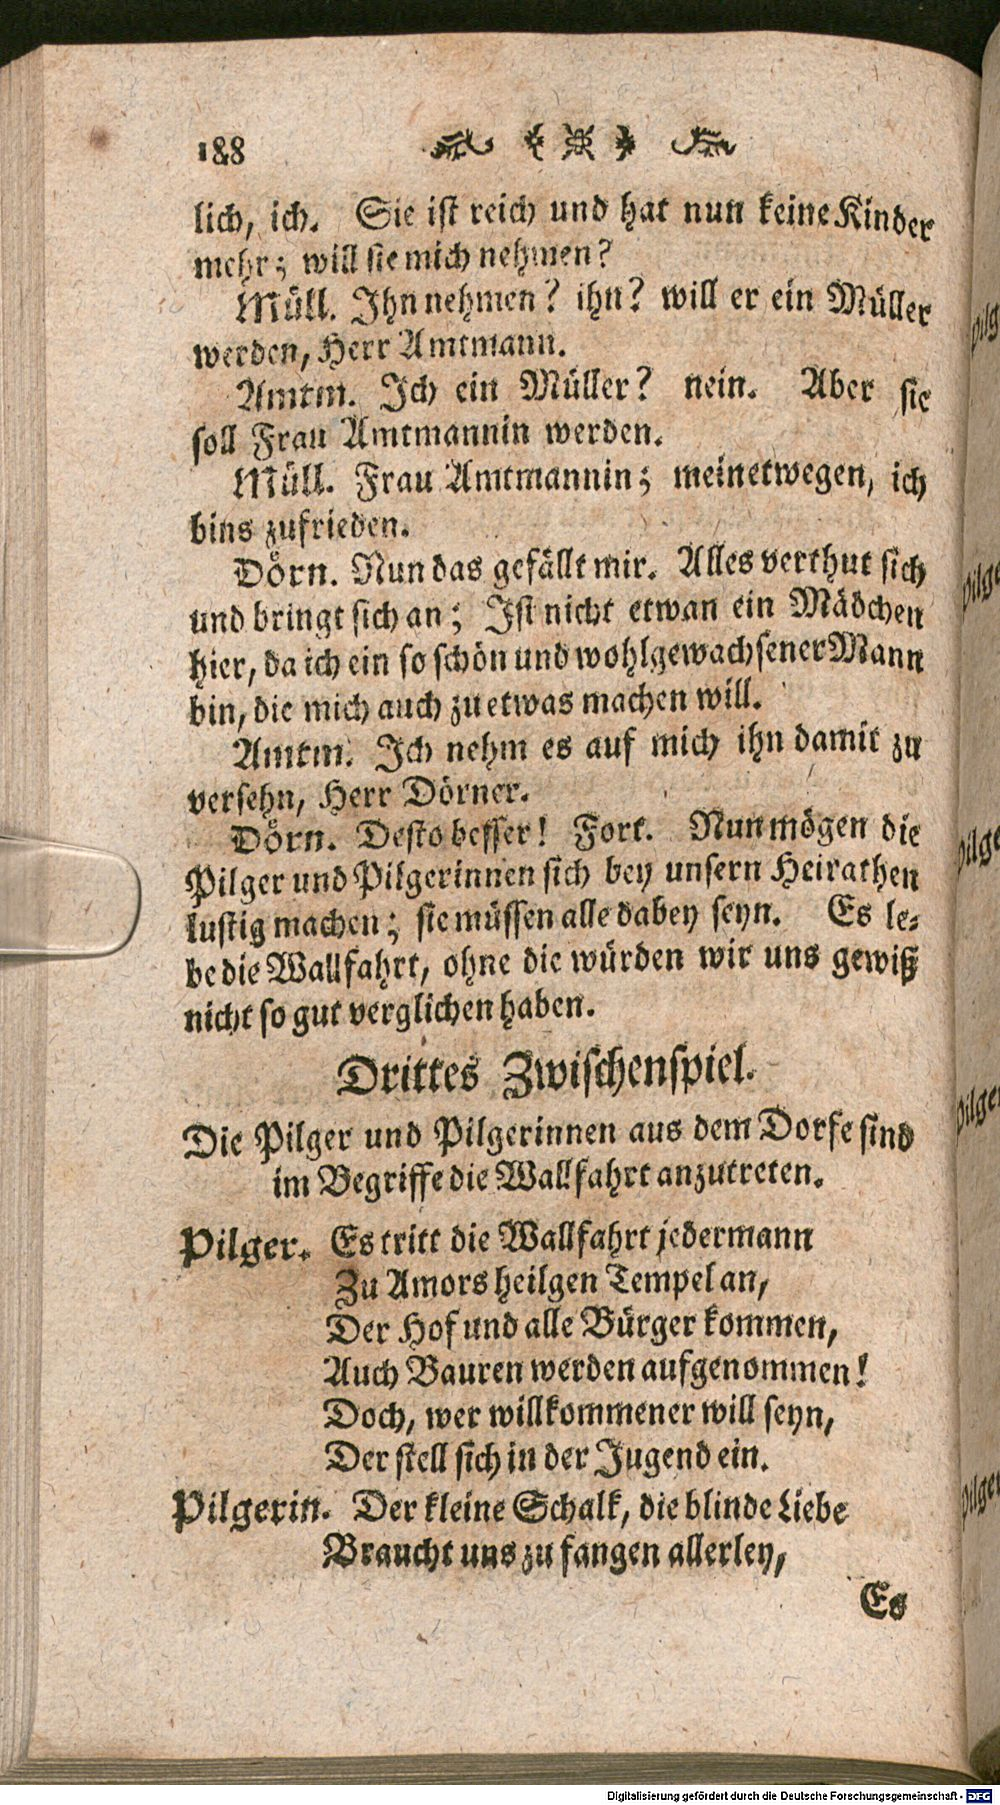 188
lich, ich. Sie ist reich und hat nun keine Kinder
mehr; will sie mich nehmen?
Müll. Ihn nehmen? ihn? will er ein Müller
werden, Herr Amtmann.
Amtm. Ich ein Müller? nein. Aber sie
soll Frau Amtmannin werden.
Müll. Frau Amtmannin; meinetwegen, ich
bins zufrieden.
Dörn. Nun das gefällt mir. Alles verthut sich
und bringt sich an; Ist nicht etwan ein Mädchen
hier, da ich ein so schön und wohlgewachsener Mann
bin, die mich auch zu etwas machen will.
Amtm. Ich nehm es auf mich ihn damit zu
versehn, Herr Dörner.
Dörn. Desto besser! Fort. Nun mögen die
Pilger und Pilgerinnen sich bey unsern Heirathen
lustig machen; sie müssen alle dabey seyn. Es le-
be die Wallfahrt, ohne die würden wir uns gewiß
nicht so gut verglichen haben.
Drittes Zwischenspiel.
Die Pilger und Pilgerinnen aus dem Dorfe sind
im Begriffe die Wallfahrt anzutreten.
Pilger. Es tritt die Wallfahrt jedermann
Zu Amors heilgen Tempel an,
Der Hof und alle Bürger kommen,
Auch Bauren werden aufgenommen!
Doch, wer willkommener will seyn,
Der stell sich in der Jugend ein.
Pilgerin. Der kleine Schalk, die blinde Liebe
Braucht uns zu fangen allerley,
Es
Pilg
Pilge
Pilge
Pilger
Pilger
Digitalisierung gefördert durch die Deutsche Forschungsgemeinschaft - DFG